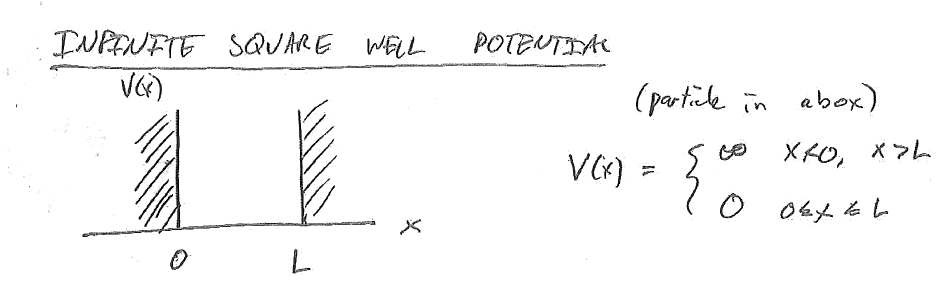 INFINITE SQUARE WELL POTENTIAL
V(x)
(particle in a box)
V(x) = { ∞ x<0, x>L
0 0≤x≤L
x
0 L